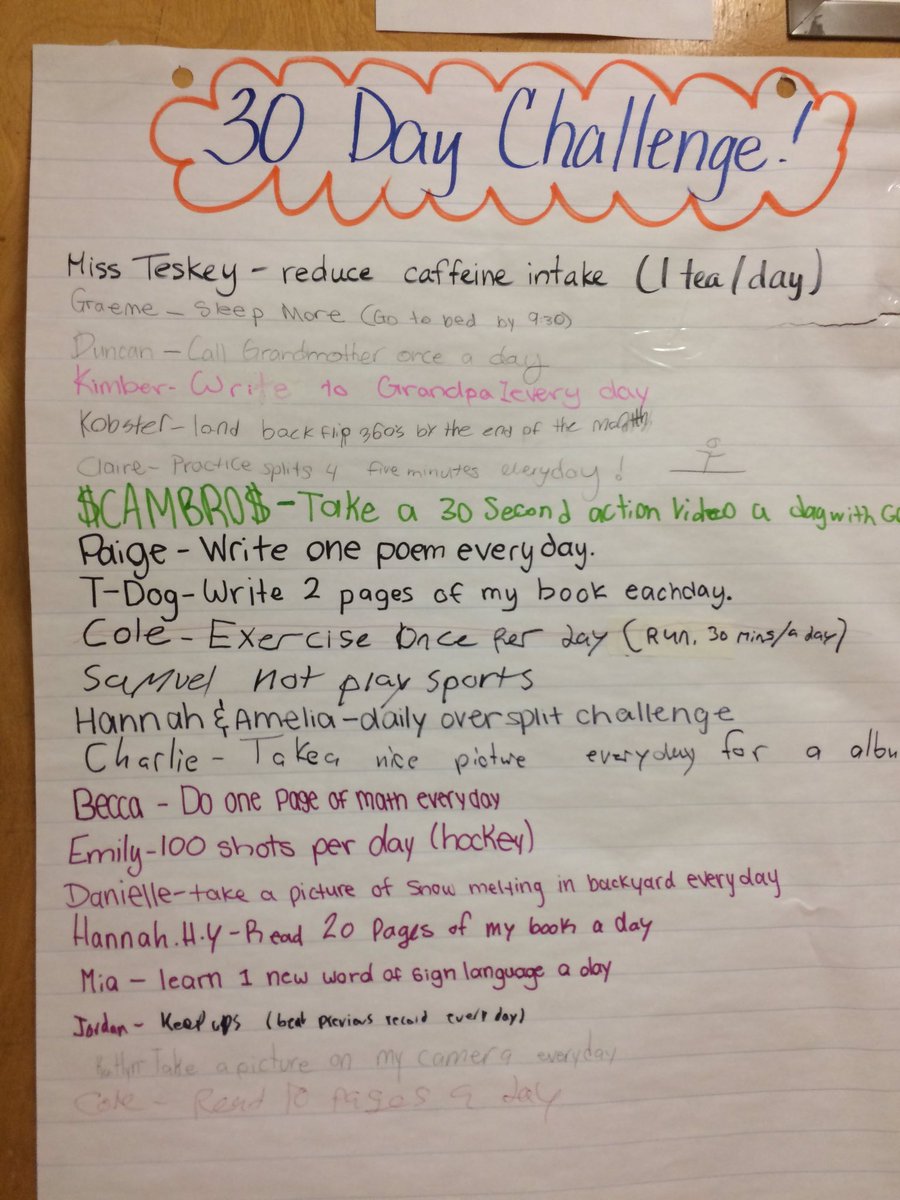 30 Day Challenge!
Miss Teskey - reduce caffeine intake (1 tea/day)
Graeme - Sleep More (Go to bed by 9:30)
Duncan - Call Grandmother once a day
Kimber - Write to Grandpa every day
Kobster - land back flip 360's by the end of the month
Claire - Practice splits 4 five minutes everyday!
$CAMBRO$ - Take a 30 Second action video a day with
Paige - Write one poem everyday.
T-Dog - Write 2 pages of my book eachday.
Cole - Exercise Once Per day (Run, 30 mins/a day)
Samuel not play sports
Hannah & Amelia - daily oversplit challenge
Charlie - Take a nice picture everyday for a
Becca - Do one page of math everyday
Emily - 100 shots per day (hockey)
Danielle - take a picture of snow melting in backyard everyday
Hannah.H.Y - Read 20 Pages of my book a day
Mia - learn 1 new word of sign language a day
Jordan - Keep ups (beat previous record every day)
Take a picture on my camera everyday
Cole - Read 10 pages a day